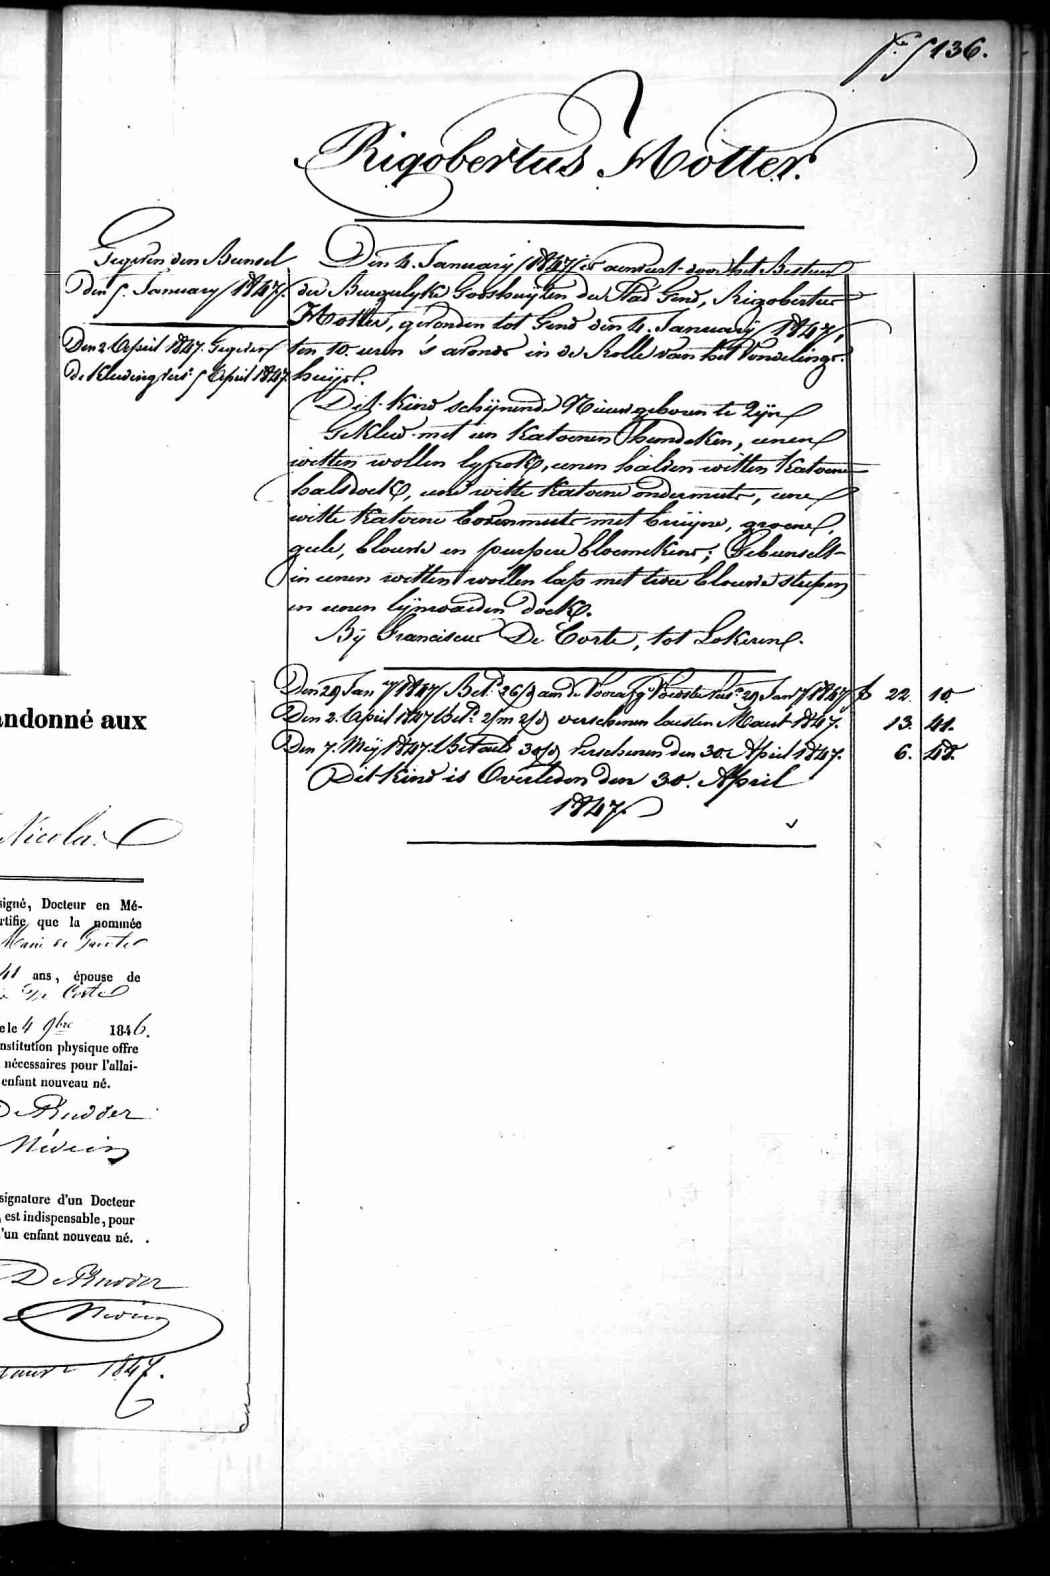 f.° 5136.
Rigobertus Hotter.
Gegeven den Bunsel
den 5. January 1847.
Den 2. April 1847. Gegeven
de Kleeding vers. 5 April 1847.
Den 4. January 1847, is aenveert door het Bestuer
der Burgelyke Godshuyzen der Stad Gend, Rigobertus
Hotter, gevonden tot Gend den 4. January 1847,
ten 10. uren 's avonds in de Rolle van het Vondelings-
huys.
Dit kind schynende Nieuwgeboren te Zyn
Gekleed met een Katoenen hemdeken, eenen
witten wollen lyfrok, eenen halven witten Katoenen
halsdoek, eene witte Katoene ondermuts, eene
witte Katoene bovenmuts met bruyne, groene,
geele, blouwe en purpere bloemekens; Gebunselt
in eenen witten wollen lap met twee blouwe strepen
en eenen lynwaeden doek.
By Franciscus De Corte, tot Lokeren.
Den 29 Jan.ry 1847 Bet. 26/d aen de Voorafg. Voedster vers. 29 Jan.ry 1847 f 22. 10.
Den 2. April 1847 Bet. 2/m 2/d verschenen lesten Maert 1847. 13. 41.
Den 7. Mey 1847. Betaelt 30/d, Verschenen den 30. April 1847. 6. 48.
Dit kind is Overleden den 30. April
1847.
andonné aux
Nicolas
signé, Docteur en Mé-
rtifie que la nommée
Marie de
41 ans, épouse de
De Corte
e le 4 9bre 1846.
nstitution physique offre
nécessaires pour l'allai-
enfant nouveau né.
De Rudder
Médecin
signature d'un Docteur
, est indispensable, pour
'un enfant nouveau né.
De Rudder
Médecin
1847.